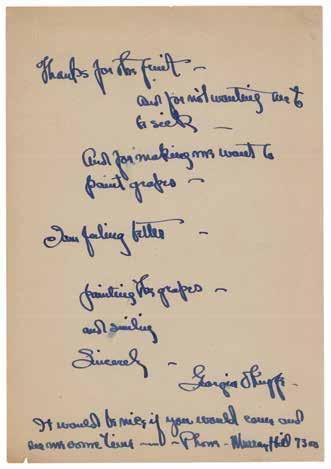 Thanks for the fruit —
and for not wanting me to
be sick —
And for making me want to
paint grapes —
I am feeling better —
painting the grapes —
and smiling
Sincerely —
Georgia O'Keeffe.
It would be nice if you would come and
see me some time —— Phone - Murray Hill 7300